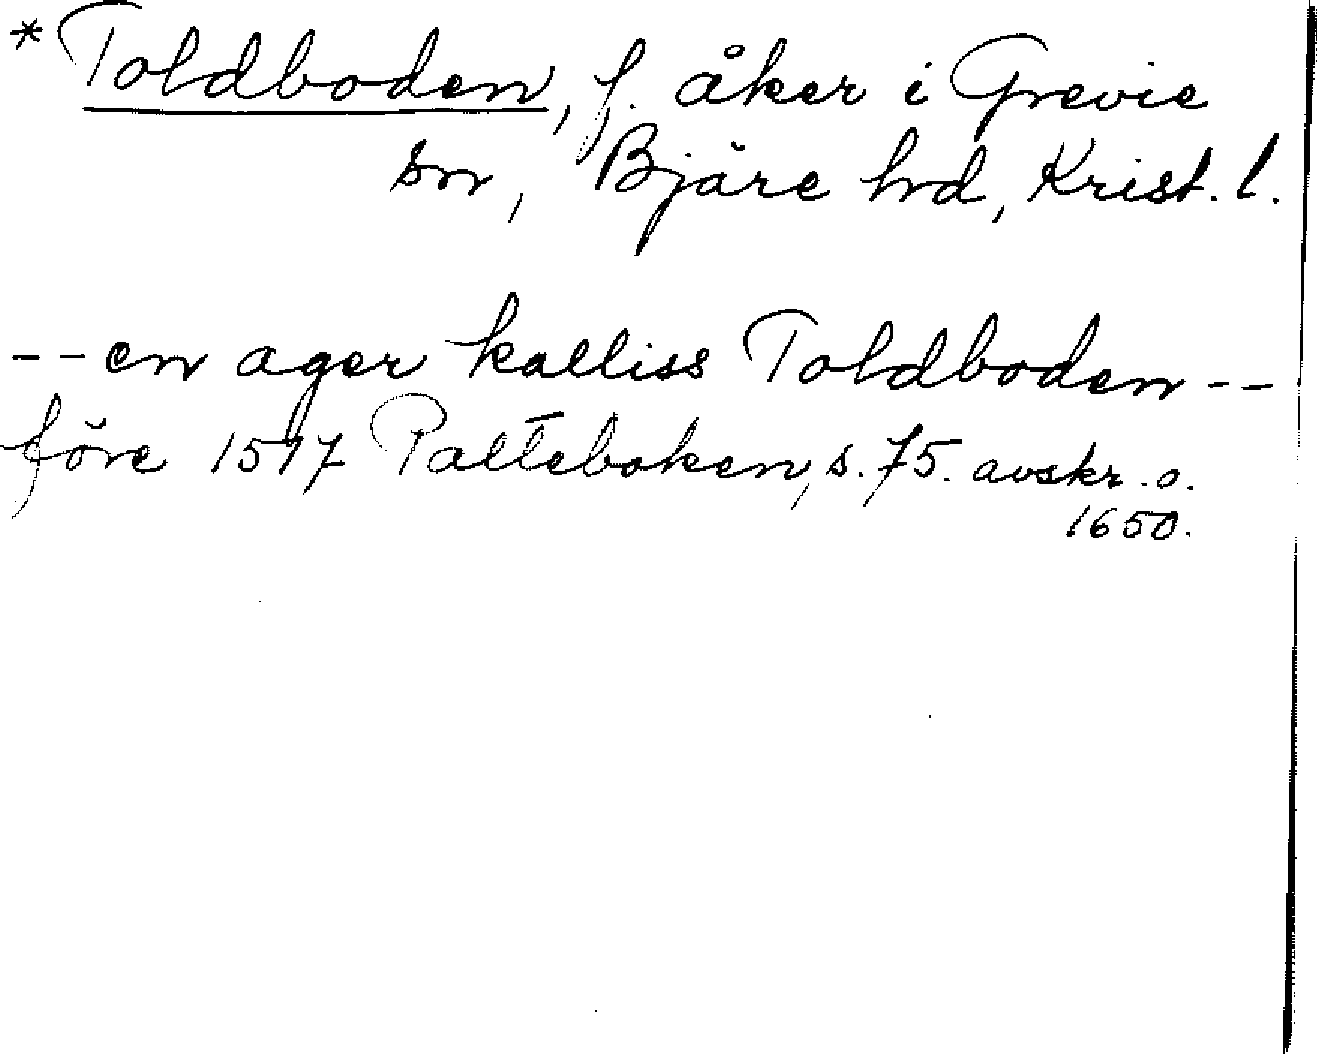 * Toldboden, f. åker i Grevie
sn, Bjäre hd, Krist. l.
-- en ager kalliss Toldboden --
före 1517 Palteboken, s. 75. avskr. o.
1650.